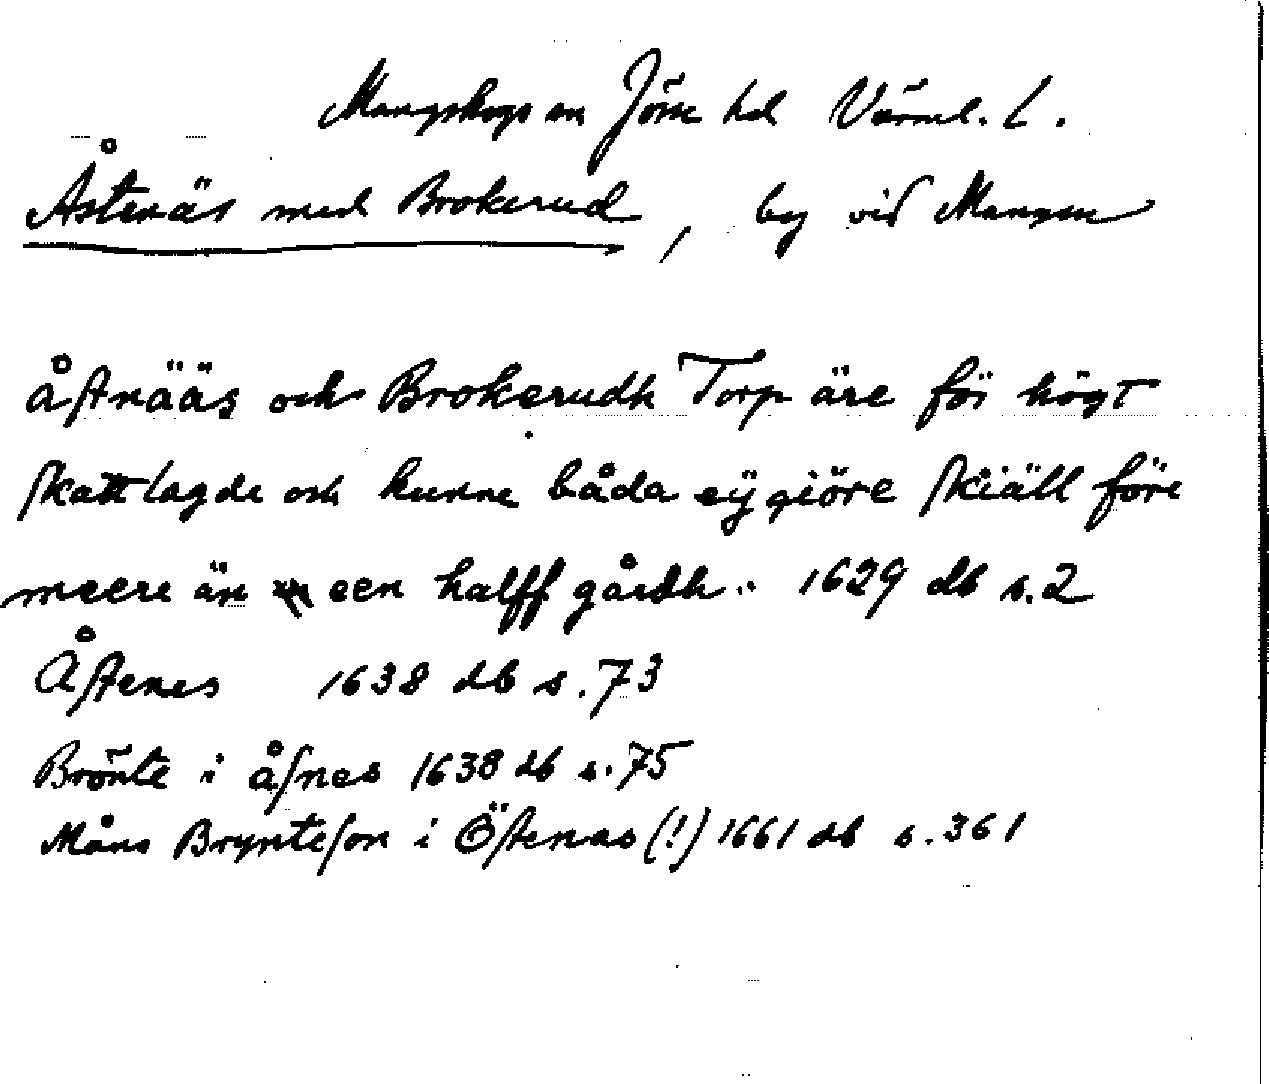 Mangskogs sn Jösse hd Värml. l.
Åstenäs med Brokerud, by vid Mangen
åstnääs och Brokerudh Torp äre för högt
skattlagde och kunne båda eÿ giöre skiäll före
meere än een halff gårdh. 1629 db s. 2
Åstenes 1638 db s. 73
Brönte i åsnes 1638 db s. 75
Måns Brynteson i Östenas (!) 1661 db s. 361